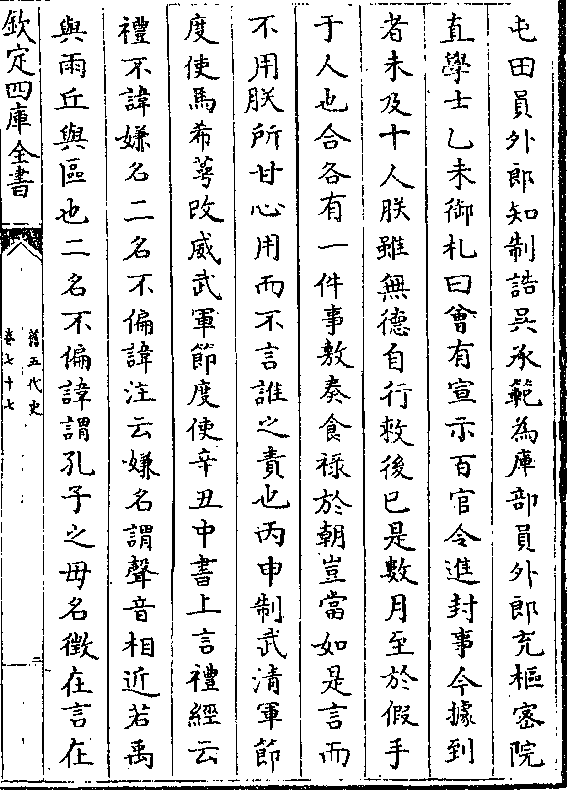 屯田員外郎知制誥吳承範為庫部員外郎充樞密院
直學士乙未御札曰曾有宣示百官令進封事今據到
者未及十人朕雖無德自行敕後已是數月至於假手
于人也合各有一件事敷奏食禄於朝豈當如是言而
不用朕所甘心用而不言誰之責也丙申制武清軍節
度使馬希萼改威武軍節度使辛丑中書上言禮經云
禮不諱嫌名二名不偏諱注云嫌名謂聲音相近若禹
與雨丘與區也二名不偏諱謂孔子之毋名徵在言在
欽定四庫全書
舊五代史
卷七十七
二